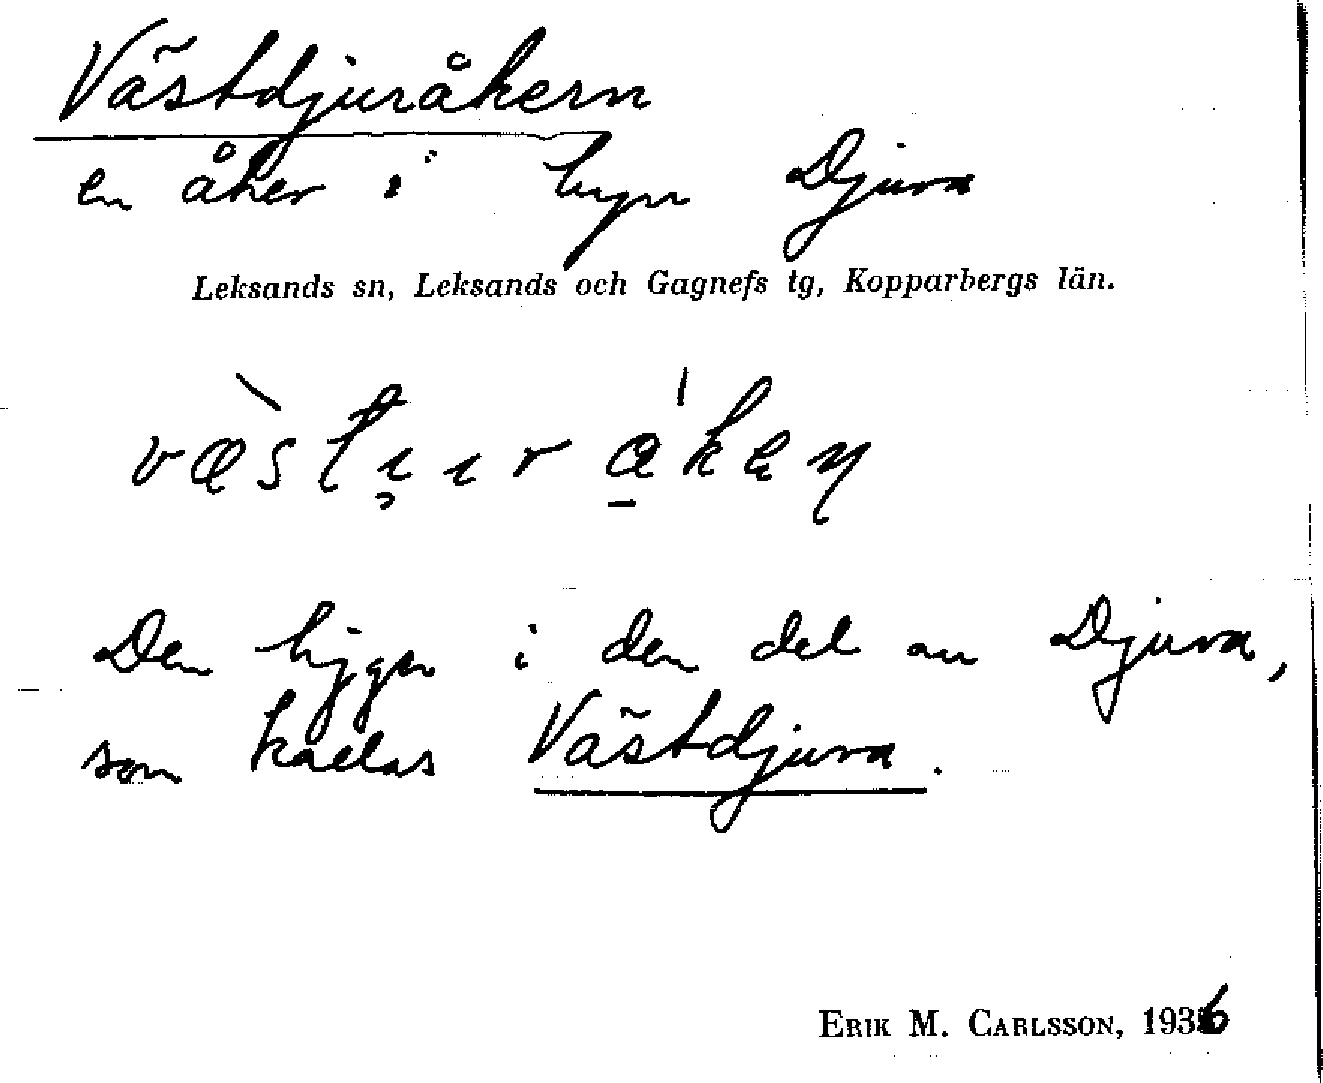 Västdjuråkern
en åker i byn Djura
Leksands sn, Leksands och Gagnefs tg, Kopparbergs län.
Den ligger i den del av Djura,
som kallas Västdjura.
ERIK M. CARLSSON, 1936